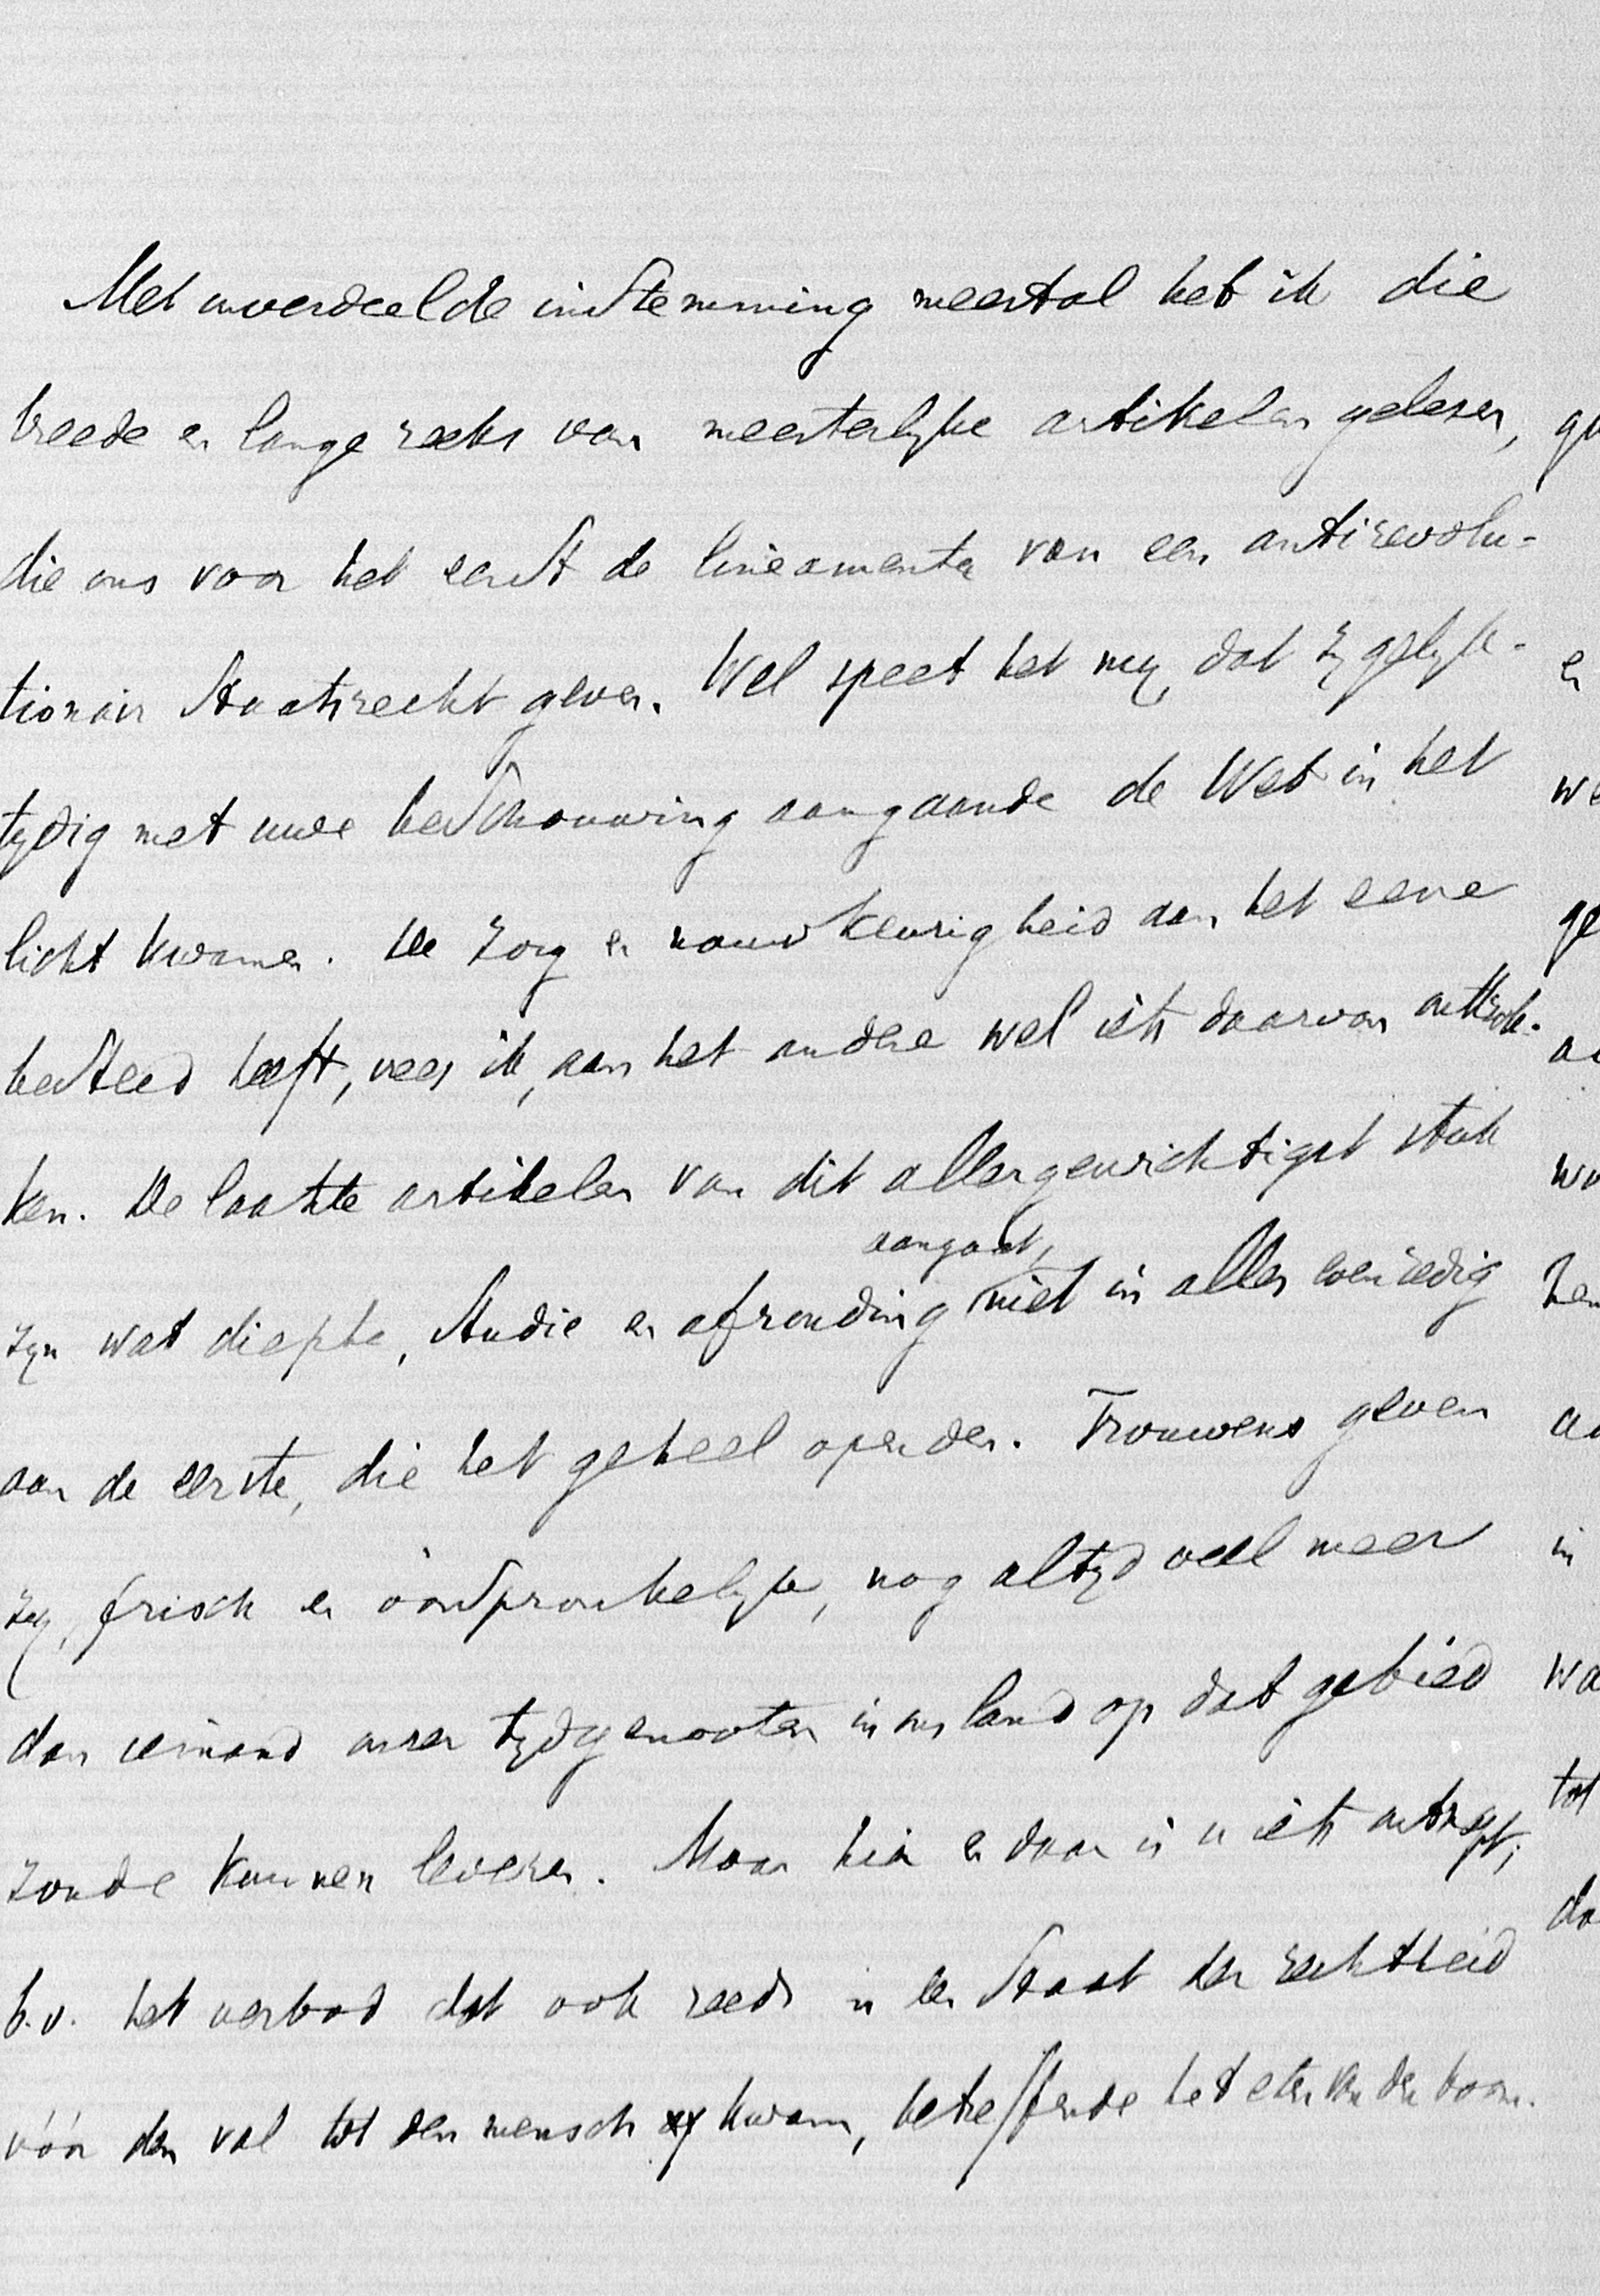 Met onverdeelde instemming meestal heb ik die
breede en lange reeks van meesterlyke artikelen gelezen,
die ons voor het eerst de lineamenta van een antirevolu-
tionair Staatsrecht geven. Wel speet het my, dat zy gelyk-
tydig met uwe beschouwing aangaande de Wet in het
licht kwamen. De zorg en nauwkeurigheid aan het eene
besteed heeft, vrees ik, aan het andere wel iets daarvan onttrok-
ken. De laatste artikelen van dit allergewichtigst stuk
zyn wat diepte, studie en afronding aangaat, niet in alles evenredig
aan de eerste, die het geheel openden. Trouwens geven
zy, frisch en óórspronkelyk, nog altyd veel meer
dan iemand onzer tydgenooten in ons land op dat gebied
zoude kunnen leveren. Maar hier en daar is u iets ontsnapt;
b.v. het verbod dat ook reeds in den Staat der rechtheid
vóór den val tot den mensch kwam, betreffende het eten van den boom.